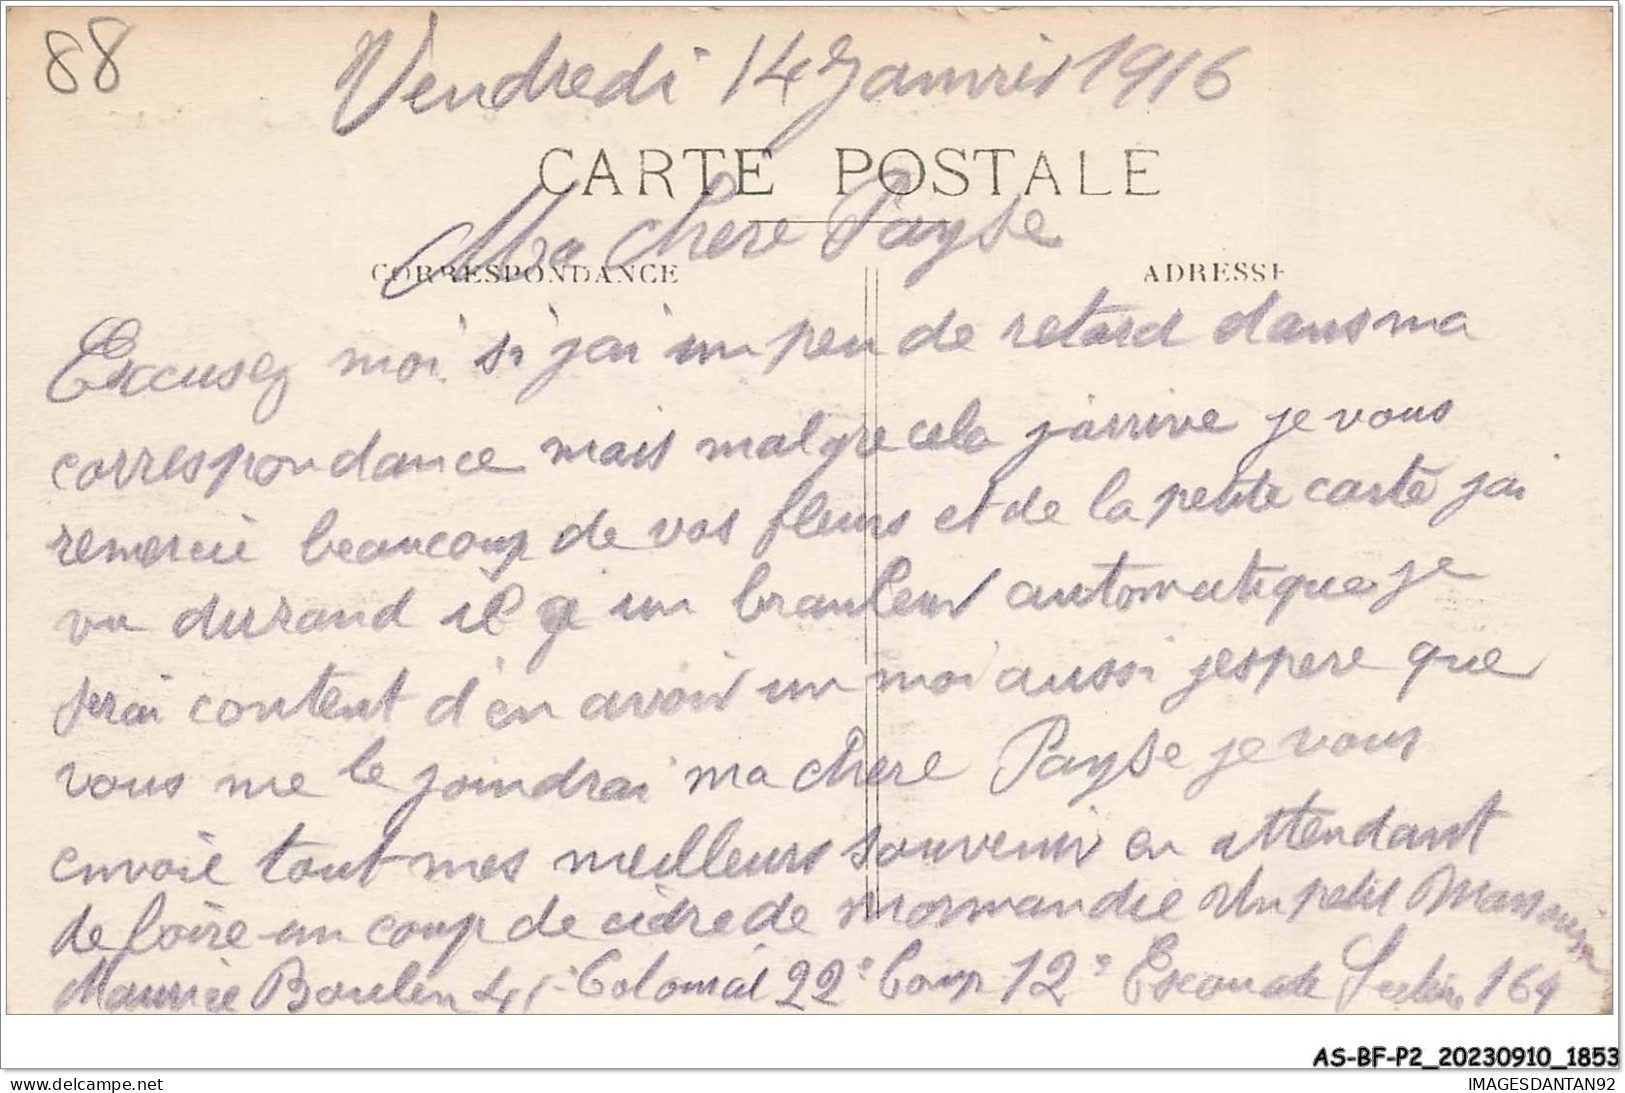 88
Vendredi 14 Janvier 1916
CARTE POSTALE
Ma chere Payse
CORRESPONDANCE
ADRESSE
Excusez moi si j'ai un peu de retard dans ma
correspondance mais malgre cela j'arrive je vous
remercie beaucoup de vos fleurs et de la petite carte jai
vu durand il a un branleur automatique je
serai content d'en avoir un moi aussi jespere que
vous me le joindrai ma chere Payse je vous
envoie tout mes meilleurs souvenir en attendant
de boire un coup de cidre de normandie Un petit
Maurice Boulen 41 Colonial 22e Comp 12e Escouade Secteur 164
AS-BF-P2_20230910_1853
www.delcampe.net
IMAGESDANTAN92